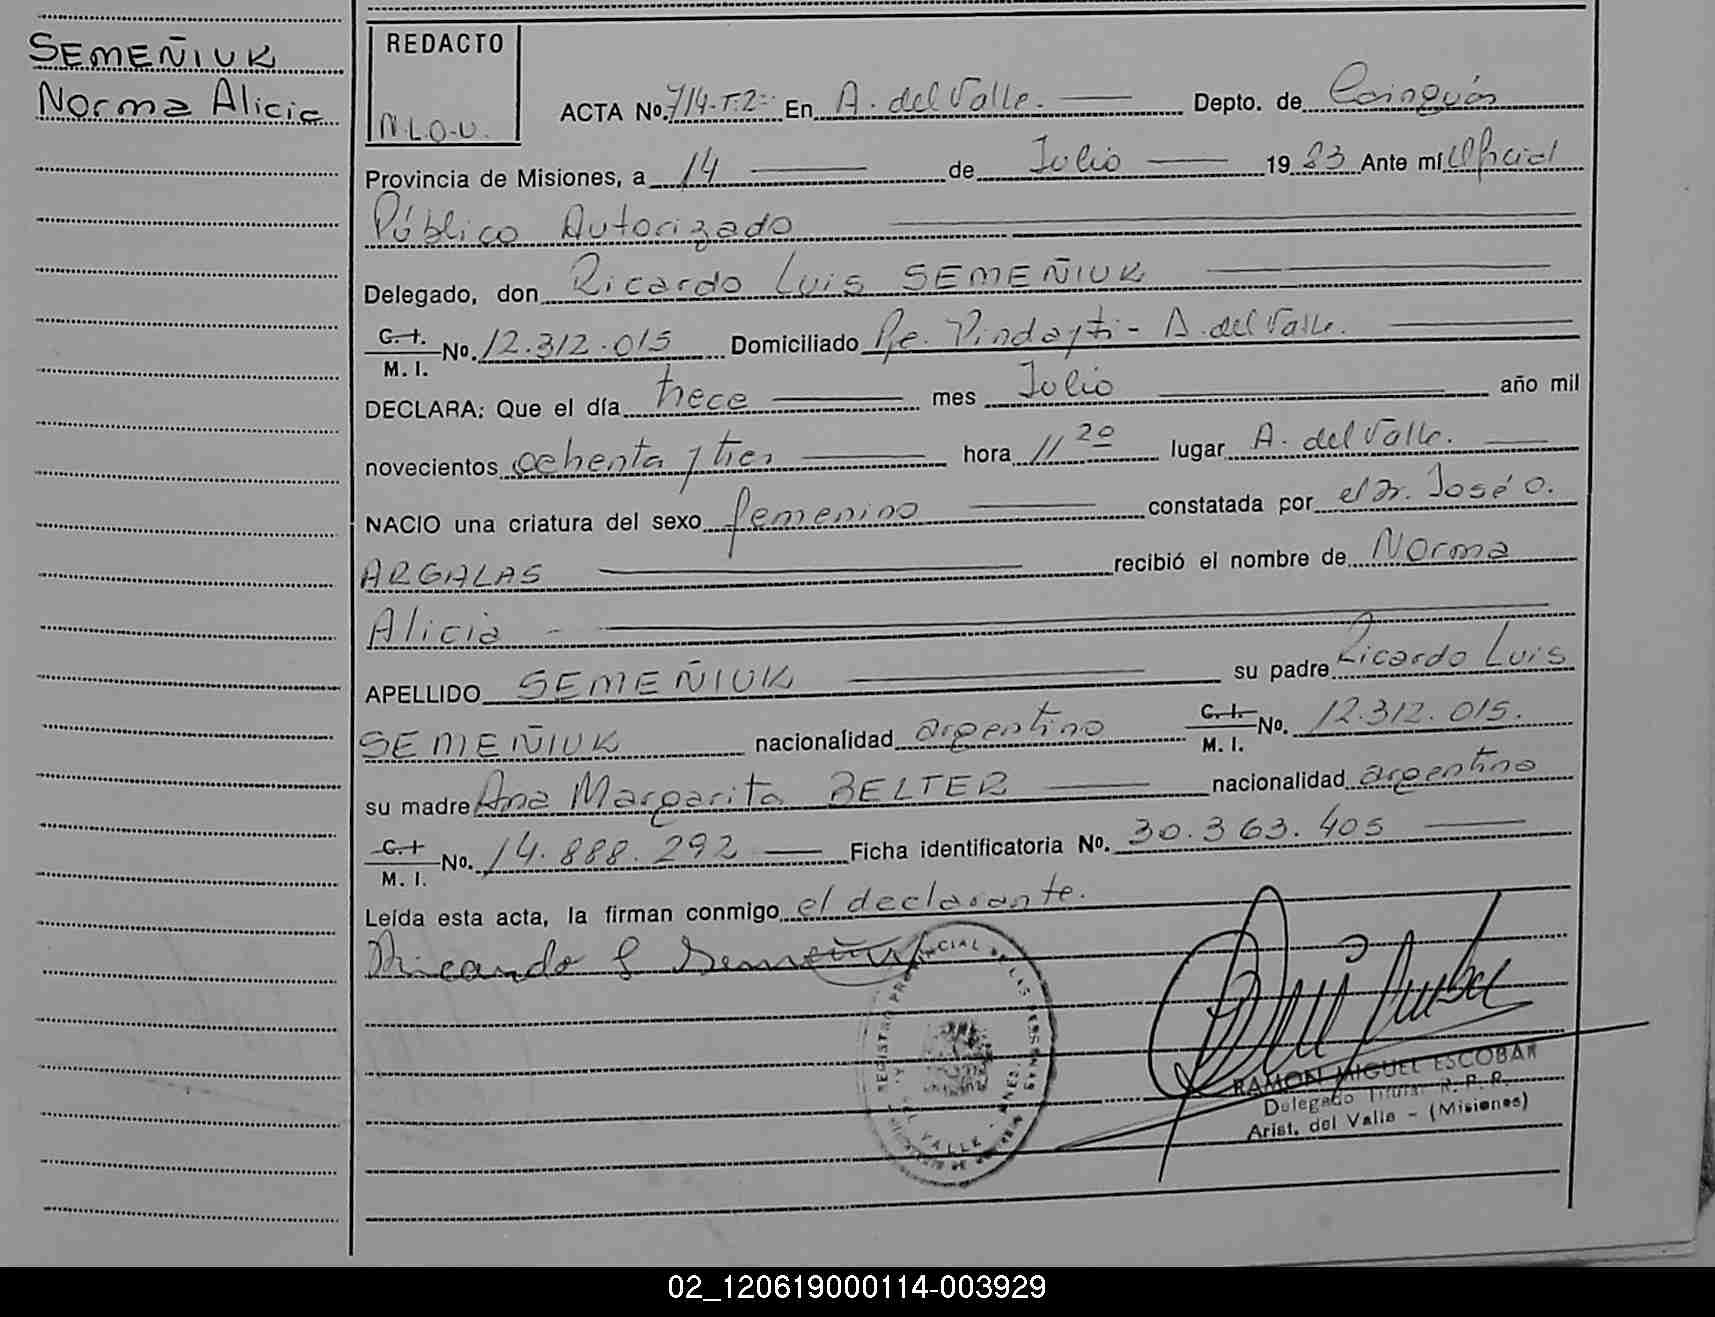 SEMEÑIUK
Norma Alicia
REDACTO
N.L.O.U.
ACTA No. 714-T.2= En A. del Valle. Depto. de Cainguás
Provincia de Misiones, a 14 de Julio 1983 Ante mí Oficial
Público Autorizado
Delegado, don Ricardo Luis SEMEÑIUK
C. I.
M. I. No. 12.312.015 Domiciliado Pje. Pindayti - A. del Valle.
DECLARA: Que el día trece mes Julio año mil
novecientos ochenta y tres hora 11 20 lugar A. del Valle.
NACIO una criatura del sexo femenino constatada por el Dr. José O.
ARGALAS recibió el nombre de Norma
Alicia -
APELLIDO SEMEÑIUK su padre Ricardo Luis
SEMEÑIUK nacionalidad argentino C. I. M. I. No. 12.312.015.
su madre Ana Margarita BELTER nacionalidad argentina
C. I
M. I. No. 14.888.292 Ficha identificatoria No. 30.363.405
Leída esta acta, la firman conmigo el declarante.
Ricardo L Semeñiuk
REGISTRO PROVINCIAL DE LAS PERSONAS
VALLE
RAMON MIGUEL ESCOBAR
Delegado Titular R. P. P.
Arist. del Valle - (Misiones)
02_120619000114-003929